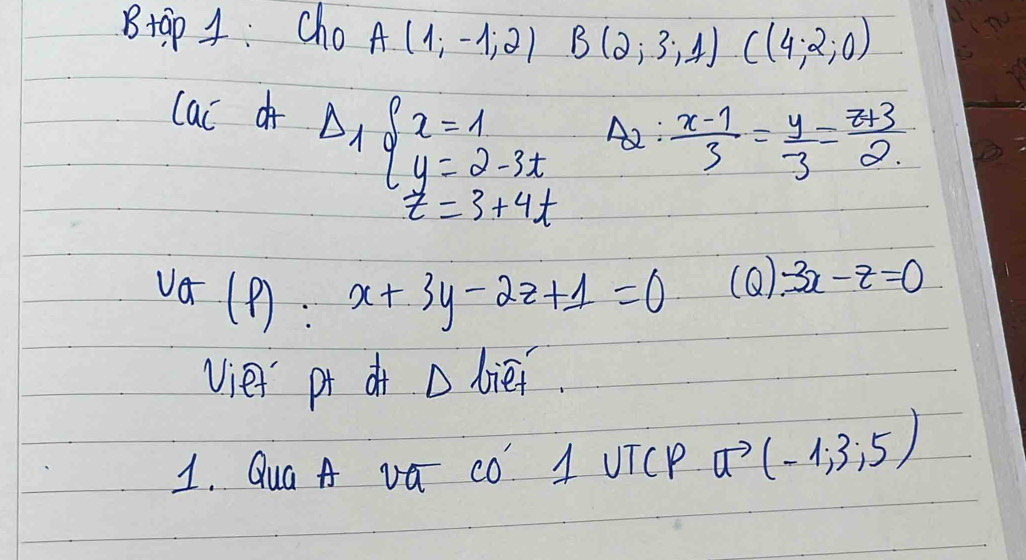 B tập 1 : Cho A (1; -1; 2) B (2; 3; 1) C (4; 2; 0)
Các đt Δ1 { x = 1 Δ2 : (x-1)/3 = y/3 = (z+3)/2.
y = 2 - 3t
z = 3 + 4t
Và (P) : x + 3y - 2z + 1 = 0 (Q): 3x - z = 0
Viết pt đt Δ biết .
1. Qua A và có 1 VTCP a→ (-1; 3; 5)